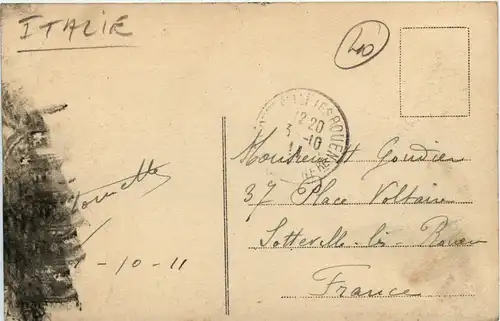 ITALIE
40
12-20
3-10
Tournette
-10-11
Monsieur Goudier
37 Place Voltaire
Sotteville-lès-Rouen
France